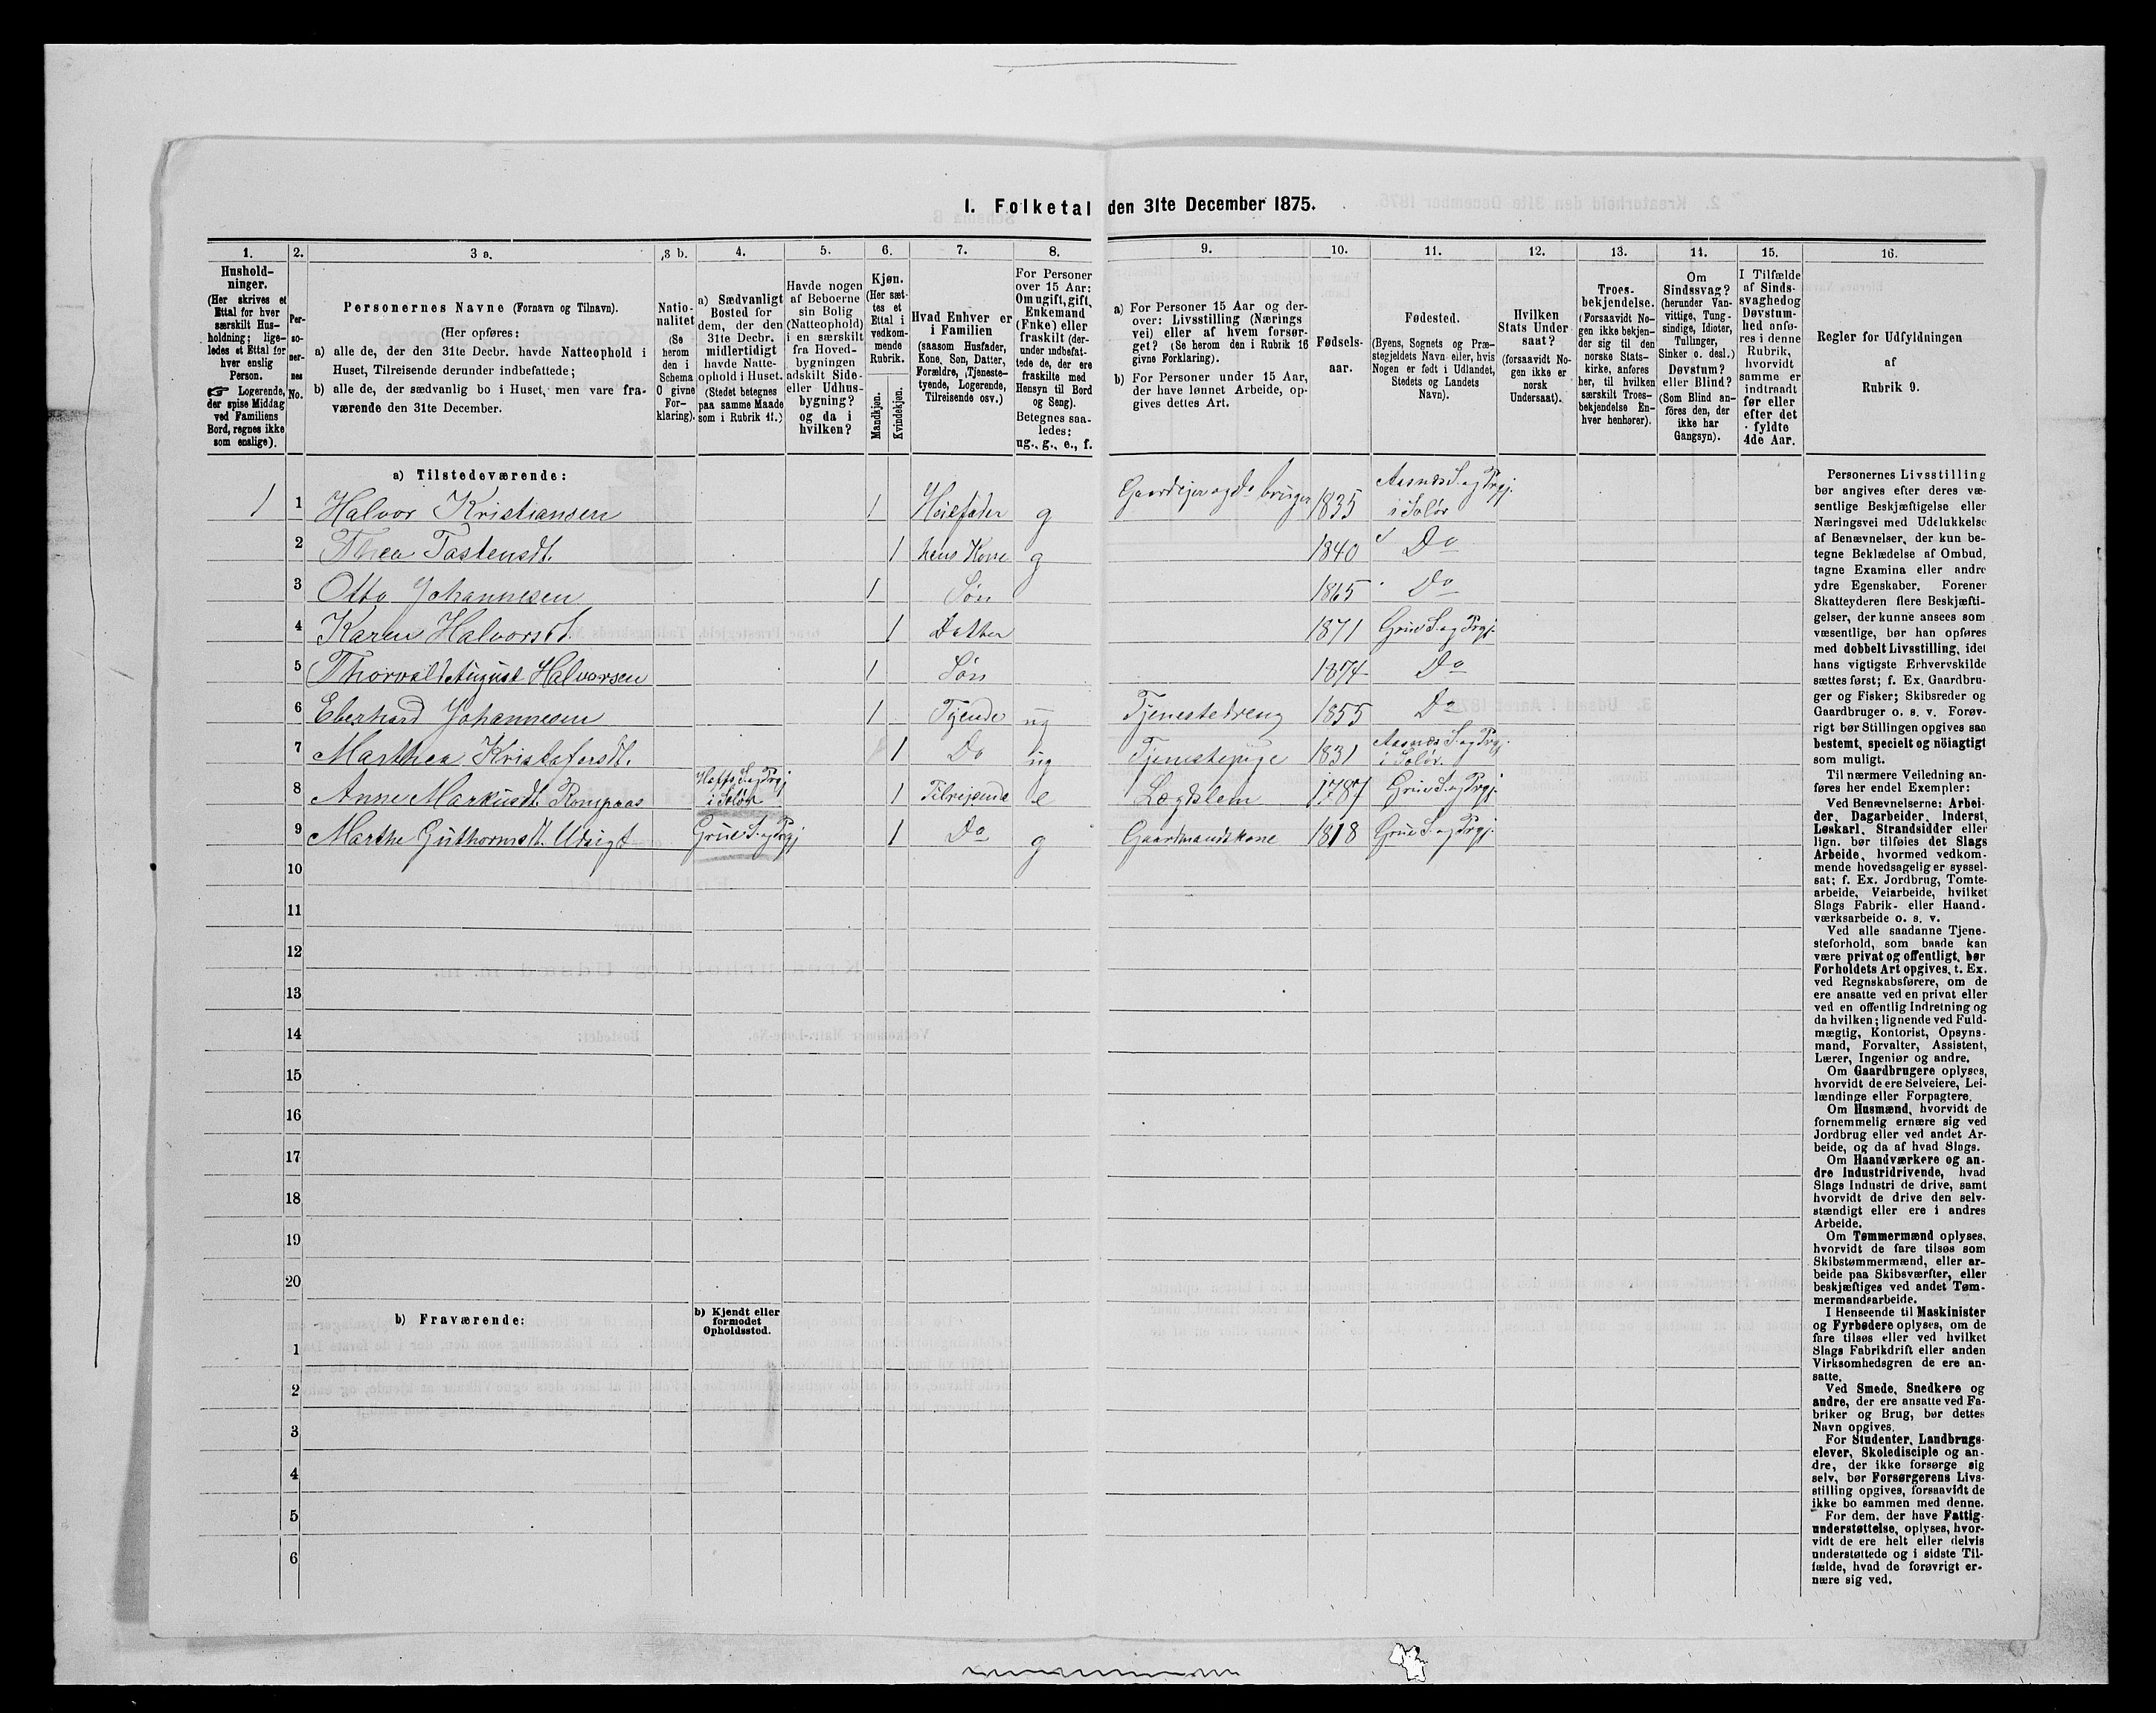 I. Folketal den 31te December 1875.
1.
2.
3 a.
3 b.
4.
5.
6.
7.
8.
9.
10.
11.
12.
13.
14.
15.
16.
Hushold-
ninger.
(Her skrives et
Ettal for hver
særskilt Hus-
holdning; lige-
ledes et Ettal for
hver enslig
Person.
☞ Logerende,
der spise Middag
ved Familiens
Bord, regnes ikke
som enslige).
Per-
so-
ner-
nes
No.
Personernes Navne (Fornavn og Tilnavn).
(Her opføres:
a) alle de, der den 31te Decbr. havde Natteophold i
Huset, Tilreisende derunder indbefattede;
b) alle de, der sædvanlig bo i Huset, men vare fra-
værende den 31te December.
Natio-
nalitet
(Se
herom
den i
Schema
O givne
For-
klaring).
a) Sædvanligt
Bosted for
dem, der den
31te Decbr.
midlertidigt
havde Natte-
ophold i Huset.
(Stedet betegnes
paa samme Maade
som i Rubrik 11.)
Havde nogen
af Beboerne
sin Bolig
(Natteophold)
i en særskilt
fra Hoved-
bygningen
adskilt Side-
eller Udhus-
bygning?
og da i
hvilken?
Kjøn.
(Her sæt-
tes et
Ettal i
vedkom-
mende
Rubrik.
Mandkjøn.
Kvindekjøn.
Hvad Enhver er
i Familien
(saasom Husfader,
Kone, Søn, Datter,
Forældre, Tjeneste-
tyende, Logerende,
Tilreisende osv.)
For Personer
over 15 Aar:
Om ugift, gift,
Enkemand
(Enke) eller
fraskilt (der-
under indbefat-
tede de, der ere
fraskilte med
Hensyn til Bord
og Seng).
Betegnes saa-
ledes:
ug., g., e., f.
a) For Personer 15 Aar og der-
over: Livsstilling (Nærings
vei) eller af hvem forsør-
get? (Se herom den i Rubrik 16
givne Forklaring).
b) For Personer under 15 Aar,
der have lønnet Arbeide, op-
gives dettes Art.
Fødsels-
aar.
Fødested.
(Byens, Sognets og Præ-
stegjeldets Navn eller, hvis
Nogen er født i Udlandet,
Stedets og Landets
Navn).
Hvilken
Stats Under-
saat?
(forsaavidt No-
gen ikke er
norsk
Undersaat).
Troes-
bekjendelse.
(Forsaavidt No-
gen ikke bekjen-
der sig til den
norske Stats-
kirke, anføres
her, til hvilken
særskilt Troes-
bekjendelse En-
hver henhører).
Om
Sindssvag?
(herunder Van-
vittige, Tung-
sindige, Idioter,
Tullinger,
Sinker o. desl.)
Døvstum?
eller Blind?
(Som Blind an-
føres den, der
ikke har
Gangsyn).
I Tilfælde
af Sinds-
svaghedog
Døvstum-
hed anfø-
res i denne
Rubrik,
hvorvidt
samme er
indtraadt
før eller
efter det
fyldte
4de Aar.
Regler for Udfyldningen
af
Rubrik 9.
a) Tilstedeværende:
1 1 Halvor Kristiansen 1 Husfader g Gaardejer og do bruger 1835 Aasnæs S. og Prgj. i Solør
2 Thea Tostensdt. 1 hans Kone g 1840 Do
3 Otto Johannesen 1 Søn 1865 Do
4 Karen Halvorsdt. 1 Datter 1871 Grue S. og Prgj.
5 Thorvald August Halvorsen 1 Søn 1874 Do
6 Eberhard Johannesen 1 Tyende ug Tjenestedreng 1855 Do
7 Marthea Kristofersdt. 1 Do ug Tjenestepige 1831 Aasnæs S. og Prgj. i Solør.
8 Anne Markusdt. Hoffs S. og Prgj i Solør 1 Tilrejsende e Lægdslem 1787 Grue S. og Prgj.
9 Marthe Guthormsdt. Udsigt Grue S. og Prgj 1 Do g Gaardmandskone 1818 Grue S. og Prgj.
10
11
12
13
14
15
16
17
18
19
20
b) Fraværende:
b) Kjendt eller
formodet
Opholdssted.
1
2
3
4
5
6
Personernes Livsstilling
bør angives efter deres væ-
sentlige Beskjæftigelse eller
Næringsvei med Udelukkelse
af Benævnelser, der kun be-
tegne Beklædelse af Ombud,
tagne Examina eller andre
ydre Egenskaber. Forener
Skatteyderen flere Beskjæfti-
gelser, der kunne ansees som
væsentlige, bør han opføres
med dobbelt Livsstilling, idet
hans vigtigste Erhvervskilde
sættes først; f. Ex. Gaardbru-
ger og Fisker; Skibsreder og
Gaardbruger o. s. v. Forøv-
rigt bør Stillingen opgives saa
bestemt, specielt og nöiagtigt
som muligt.
Til nærmere Veiledning an-
føres her endel Exempler:
Ved Benævnelserne: Arbei-
der, Dagarbeider, Inderst,
Løskarl, Strandsidder eller
lign. bør tilføies det Slags
Arbeide, hvormed vedkom-
mende hovedsagelig er syssel-
sat; f. Ex. Jordbrug, Tomte-
arbeide, Veiarbeide, hvilket
Slags Fabrik- eller Haand-
værksarbeide o. s. v.
Ved alle saadanne Tjene-
steforhold, som baade kan
være privat og offentligt, bør
Forholdets Art opgives, t. Ex.
ved Regnskabsførere, om de
ere ansatte ved en privat eller
ved en offentlig Indretning og
da hvilken; lignende ved Fuld-
mægtig, Kontorist, Opsyns-
mand, Forvalter, Assistent,
Lærer, Ingeniør og andre.
Om Gaardbrugere oplyses,
hvorvidt de ere Selveiere, Lei-
lændinge eller Forpagtere.
Om Husmænd, hvorvidt de
fornemmelig ernære sig ved
Jordbrug eller ved andet Ar-
beide, og da af hvad Slags.
Om Haandværkere og an-
dre Industridrivende, hvad
Slags Industri de drive, samt
hvorvidt de drive den selv-
stændigt eller ere i andres
Arbeide.
Om Tømmermænd oplyses,
hvorvidt de fare tilsøs som
Skibstømmermænd, eller ar-
beide paa Skibsværfter, eller
beskjæftiges ved andet Tøm-
mermandsarbeide.
I Henseende til Maskinister
og Fyrbødere oplyses, om de
fare tilsøs eller ved hvilket
Slags Fabrikdrift eller anden
Virksomhedsgren de ere an-
satte.
Ved Smede, Snedkere og
andre, der ere ansatte ved Fa-
briker og Brug, bør dettes
Navn opgives.
For Studenter, Landbrugs-
elever, Skoledisciple og an-
dre, der ikke forsørge sig
selv, bør Forsørgerens Livs-
stilling opgives, forsaavidt de
ikke bo sammen med denne.
For dem, der have Fattig-
understøttelse, oplyses, hvor-
vidt de ere helt eller delvis
understøttede og i sidste Til-
fælde, hvad de forøvrigt er-
nære sig ved.